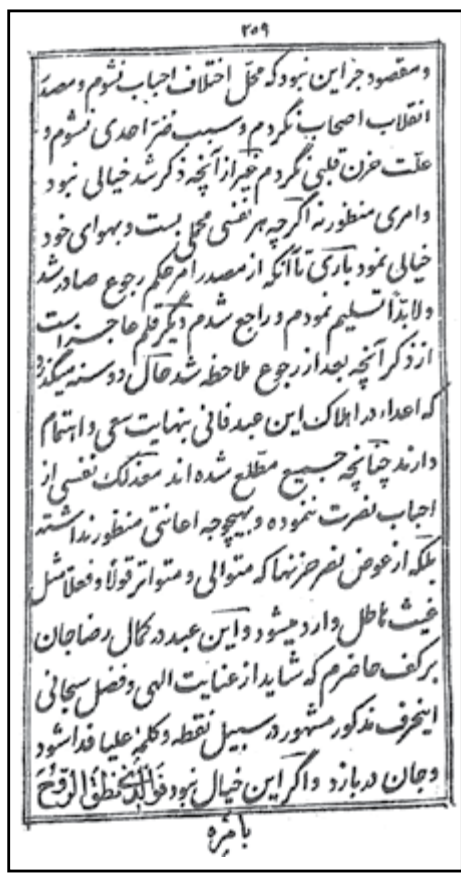 ۲۵۹
و مقصود جز این نبود که محل اختلاف احباب نشوم و مصدر
انقلاب اصحاب نگردم و سبب ضر احدی نشوم و
علّت حزن قلبی نگردم غیر از آنچه ذکر شد خیالی نبود
و امری منظور نه اگرچه هر نفسی محملی بست و بهوای خود
خیالی نمود باری تا آنکه از مصدر امر حکم رجوع صادر شد
ولابدّاً تسلیم نمودم و راجع شدم دیگر قلم عاجز است
از ذکر آنچه بعد از رجوع ملاحظه شد حال دو سنه میگذرد
که اعداء در اهلاک این عبد فانی بنهایت سعی و اهتمام
دارند چنانچه جمیع مطّلع شده اند معذلک نفسی از
احباب نصرت ننموده و بهیچوجه اعانتی منظور نداشته
بلکه از عوض نصر حزنها که متوالی و متواتر قولاً و فعلاً مثل
غیث هاطل وارد میشود و این عبد در کمال رضا جان
برکف حاضرم که شاید از عنایت الهی و فضل سبحانی
اینحرف مذکور مشهور در سبیل نقطه و کلمهٔ علیا فدا شود
و جان دربازد و اگر این خیال نبود فَوَالّذی نَطَقَ الرّوحُ
بامره